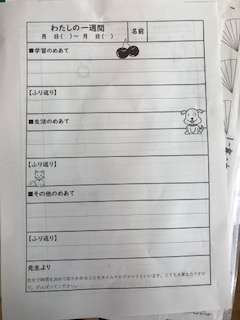 わたしの一週間
月 日( )〜 月 日( )
名前
■学習のめあて
【ふり返り】
■生活のめあて
【ふり返り】
■その他のめあて
【ふり返り】
先生より